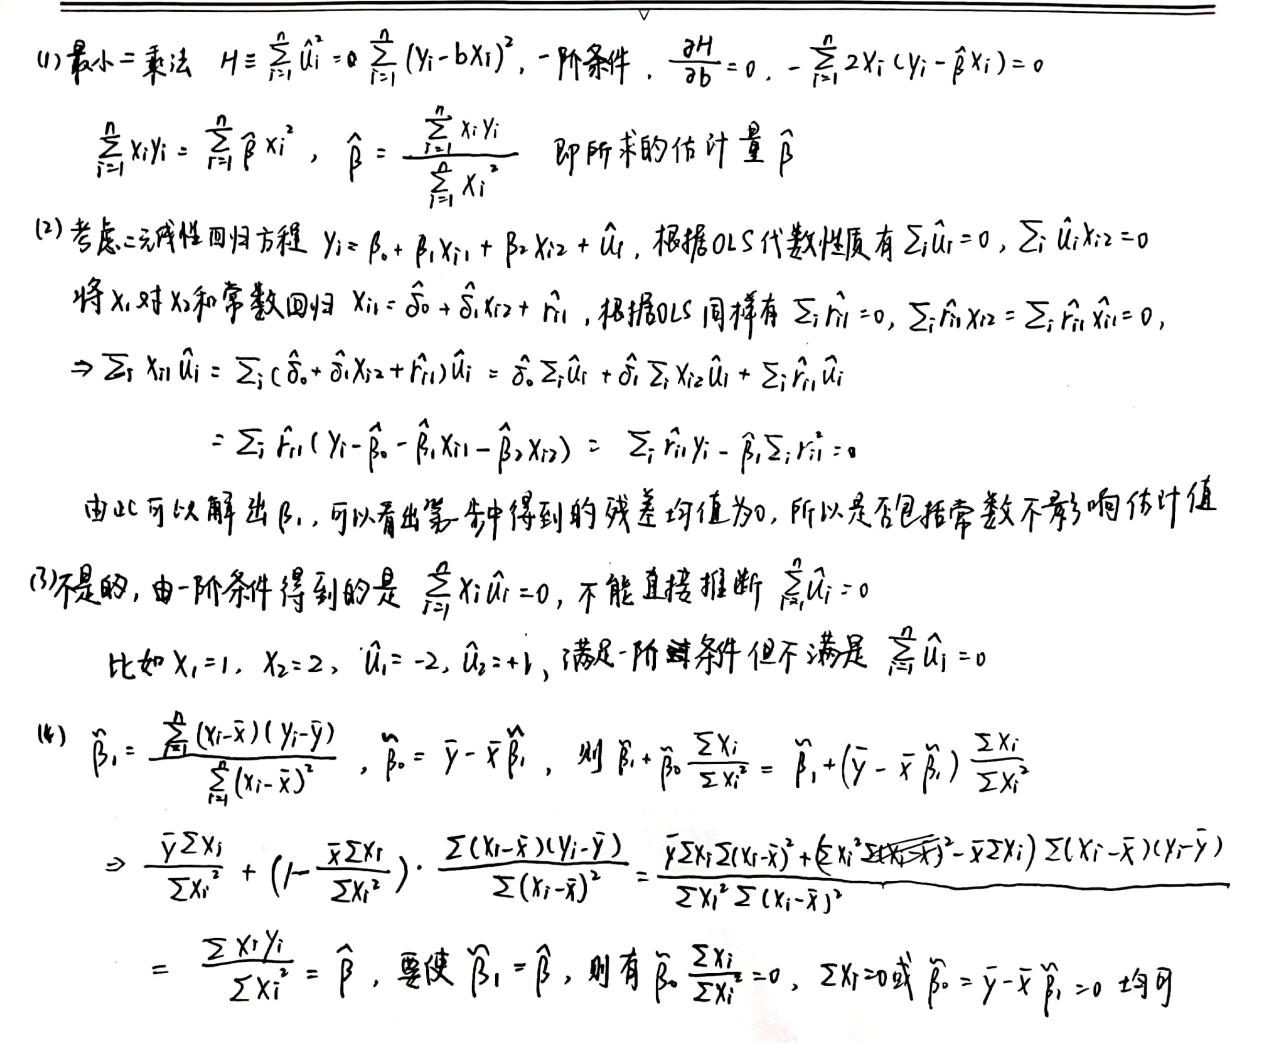 (1) 最小二乘法 H ≡ Σ_{i=1}^{n} û_i² = Σ_{i=1}^{n} (y_i - bx_i)², 一阶条件, ∂H/∂b = 0, -Σ_{i=1}^{n} 2x_i(y_i - β̂x_i) = 0
Σ_{i=1}^{n} x_iy_i = Σ_{i=1}^{n} β̂x_i², β̂ = Σ_{i=1}^{n} x_iy_i / Σ_{i=1}^{n} x_i² 即所求的估计量 β̂
(2) 考虑二元线性回归方程 y_i = β_0 + β_1x_{i1} + β_2x_{i2} + û_i, 根据OLS代数性质有 Σ_i û_i = 0, Σ_i û_i x_{i2} = 0
将 x_1 对 x_2 和常数回归 x_{i1} = δ̂_0 + δ̂_1x_{i2} + r̂_{i1}, 根据OLS同样有 Σ_i r̂_{i1} = 0, Σ_i r̂_{i1}x_{i2} = Σ_i r̂_{i1}x̂_{i1} = 0,
⇒ Σ_i x_{i1}û_i = Σ_i(δ̂_0 + δ̂_1x_{i2} + r̂_{i1})û_i = δ̂_0Σ_iû_i + δ̂_1Σ_ix_{i2}û_i + Σ_ir̂_{i1}û_i
= Σ_i r̂_{i1}(y_i - β̂_0 - β̂_1x_{i1} - β̂_2x_{i2}) = Σ_i r̂_{i1}y_i - β̂_1Σ_i r̂_{i1}² = 0
由此可以解出β_1, 可以看出第一步中得到的残差均值为0, 所以是否包括常数不影响估计值
(3) 不是的, 由一阶条件得到的是 Σ_{i=1}^{n} x_iû_i = 0, 不能直接推断 Σ_{i=1}^{n} û_i = 0
比如 x_1 = 1, x_2 = 2, û_1 = -2, û_2 = +1, 满足一阶条件但不满足 Σ_{i=1}^{n} û_i = 0
(4) β̃_1 = Σ_{i=1}^{n} (x_i - x̄)(y_i - ȳ) / Σ_{i=1}^{n} (x_i - x̄)², β̃_0 = ȳ - x̄β̃_1, 则 β̃_1 + β̃_0 Σx_i/Σx_i² = β̃_1 + (ȳ - x̄β̃_1) Σx_i/Σx_i²
⇒ ȳΣx_i/Σx_i² + (1 - x̄Σx_i/Σx_i²) · Σ(x_i - x̄)(y_i - ȳ)/Σ(x_i - x̄)² = [ȳΣx_iΣ(x_i - x̄)² + (Σx_i² - x̄Σx_i)Σ(x_i - x̄)(y_i - ȳ)] / [Σx_i²Σ(x_i - x̄)²]
= Σx_iy_i/Σx_i² = β̂, 要使 β̃_1 = β̂, 则有 β̃_0 Σx_i/Σx_i² = 0, Σx_i = 0 或 β̃_0 = ȳ - x̄β̃_1 = 0 均可